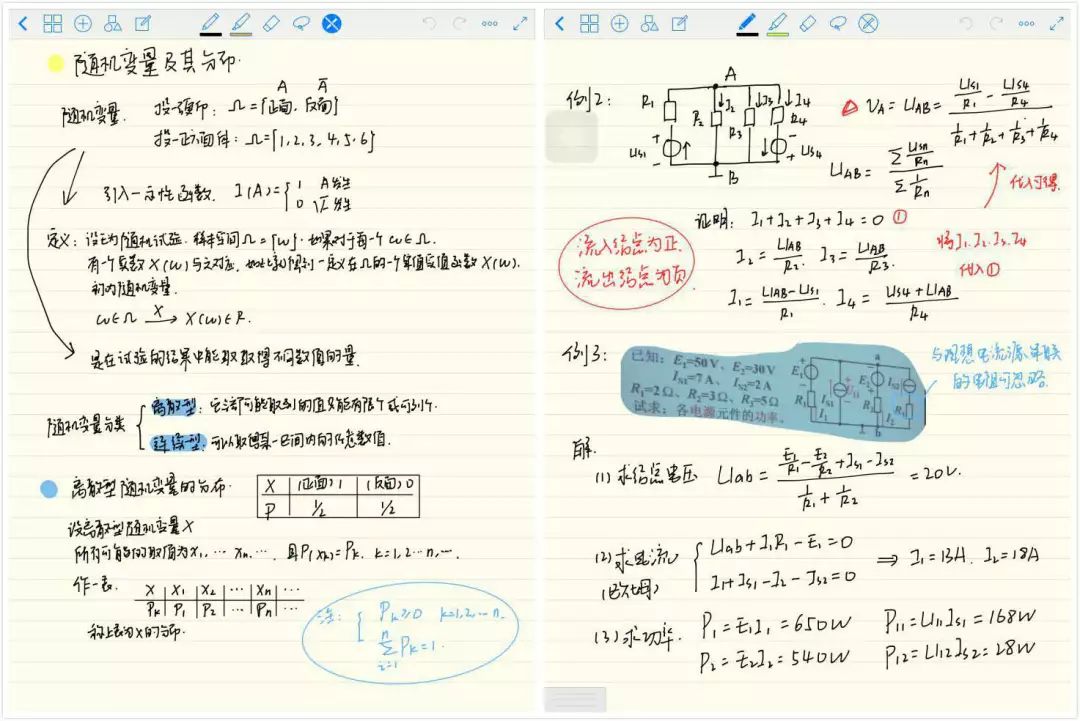 随机变量及其分布.
随机变量
投一硬币: Ω={正面, 反面}
A Ā
投一正六面体: Ω={1,2,3,4,5,6}
引入一示性函数. I(A)={1 A发生
0 Ā发生
定义: 设E为随机试验. 样本空间Ω={ω}. 如果对于每一个ω∈Ω.
有一个实数X(ω)与之对应, 定义在Ω的一个单值实值函数X(ω).
称为随机变量.
ω∈Ω X→ X(ω)∈R.
是在试验的结果中能取得不同数值的量.
随机变量分类
离散型: 它所可能取到的值只能有限个或可列个.
连续型: 可以取得某一区间内的任意数值.
离散型随机变量的分布.
X (正面)1 (反面)0
P 1/2 1/2
设离散型随机变量X
所有可能的取值为x1, … xn, …. 且P(xk)=Pk. k=1,2…n,…
作一表.
X X1 X2 … Xn …
Pk P1 P2 … Pn …
称上表为X的分布.
注: { Pk≥0 k=1,2,…n.
n∑i=1 Pk=1.
例2:
A
R1 I2 I3 I4
R2 R3 R4
Us1 + - - + Us4
B
VA=UAB= (Us1/R1 - Us4/R4) / (1/R1+1/R2+1/R3+1/R4)
UAB= (∑ Usn/Rn) / (∑ 1/Rn)
代入可得.
证明: I1+I2+I3+I4=0 ①
流入结点为正.
流出结点为负
I2= UAB/R2. I3= UAB/R3.
将I1.I2.I3.I4
代入①
I1= (UAB-Us1)/R1. I4= (Us4+UAB)/R4
例3:
已知: E1=50V、E2=30V
IS1=7A、IS2=2A
R1=2Ω、R2=3Ω、R3=5Ω
试求: 各电源元件的功率。
+ a
E1 - E2 IS2
R1 IS1 UI1 R2 R3
I1 I2
b
与理想电流源串联
的电阻可忽略.
解.
(1) 求结点电压 Uab= (E1/R1 - E2/R2 + Is1 - Is2) / (1/R1 + 1/R2) =20V.
(2) 求电流 { Uab+I1R1-E1=0
I1+Is1-I2-Is2=0 ⇒ I1=13A. I2=18A
(3) 求功率. P1=E1I1=650W PI1=UI1Is1=168W
P2=E2I2=540W PI2=UI2Is2=28W